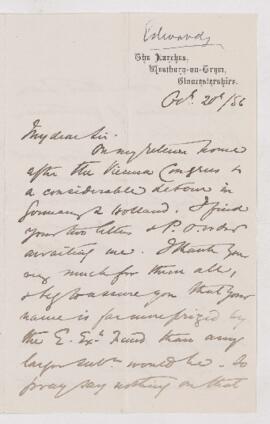 Edwards
The Larches,
Westbury-on-Trym,
Gloucestershire.
Oct. 20th/86
My dear Sir.
On my return home
after the Vienna Congress &
a considerable detour in
Germany & Holland. I find
your two letters & P. order
awaiting me. I thank you
very much for them all,
& beg to assure you that your
name is far more prized by
the E. Exn Fund than any
larger subn would be. So
pray say nothing on that